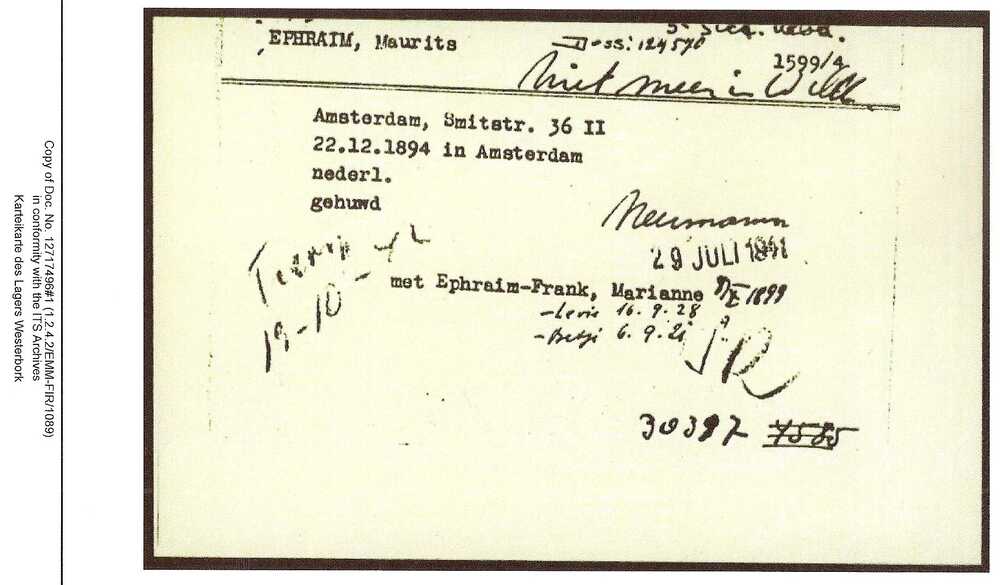 EPHRAIM, Maurits
Doss: 124570
1599/4
Niet meer in
Amsterdam, Smitstr. 36 II
22.12.1894 in Amsterdam
nederl.
gehuwd
Neumann
29 JULI
19-10-42
met Ephraim-Frank, Marianne 1899
- Levie 16.9.28
- Betji 6.9.21
30387 7585
Copy of Doc. No. 12717496#1 (1.2.4.2/EMM-FIR/1089)
in conformity with the ITS Archives
Karteikarte des Lagers Westerbork